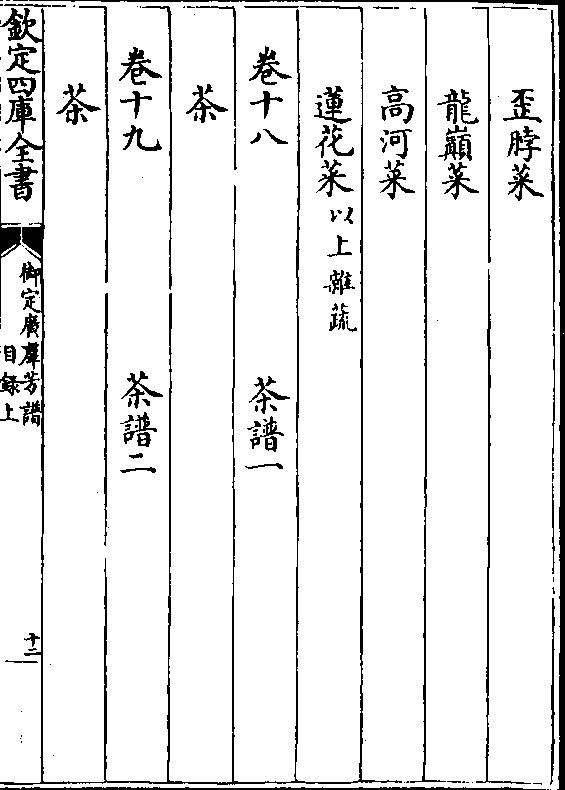 歪脖菜
龍巔菜
高河菜
蓮花菜以上雜蔬
卷十八　茶譜一
茶
卷十九　茶譜二
茶
欽定四庫全書
御定廣羣芳譜
目録上
十二